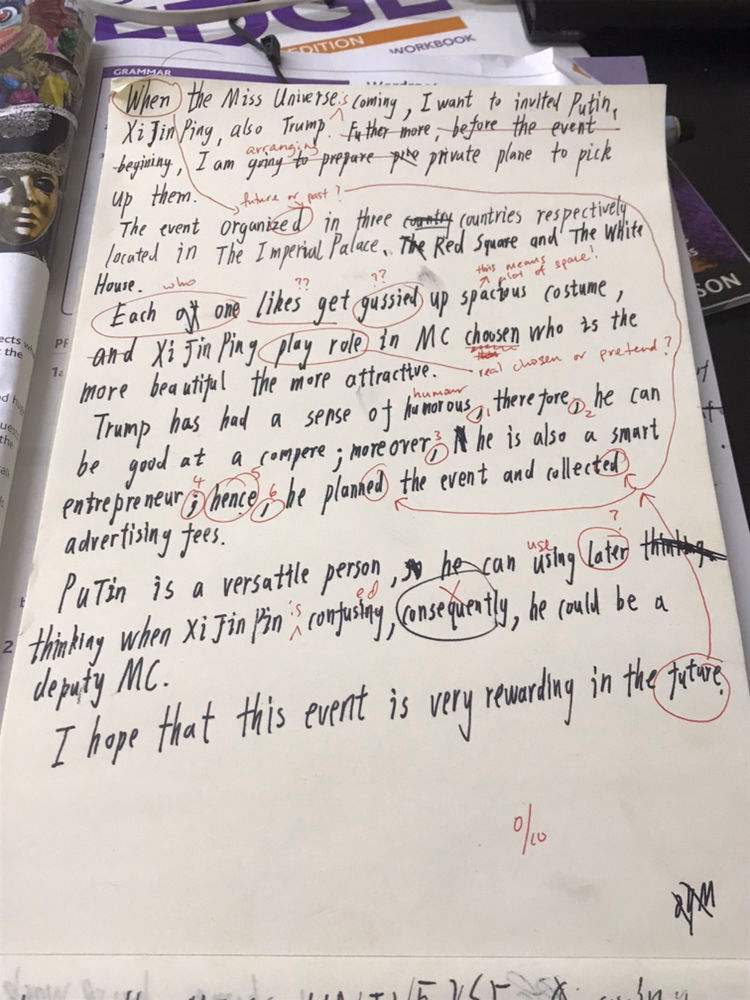 EDGE
EDITION
WORKBOOK
GRAMMAR
When the Miss Universe is coming, I want to invited Putin,
Xi Jin Ping, also Trump. Futher more, before the event
arranging
begining, I am going to prepare private plane to pick
up them.
future or past?
The event organized in three country countries respectively
located in The Imperial Palace, The Red Square and The White
House.
this means
plot of space!
who ?? ??
Each of one likes get gussied up spacious costume,
and Xi Jin Ping play role in MC choosen who is the
real chosen or pretend?
more beautiful the more attractive.
humour
Trump has had a sense of humorous, 1 therefore, 2 he can
be good at a compere; moreover, 3 he is also a smart
4 5 6
entrepreneur; hence, he planned the event and collected
advertising fees.
use ?
PuTin is a versattle person, he can using later thinking
ed
is
thinking when Xi Jin Pin confusing, consequently, he could be a
X
deputy MC.
I hope that this event is very rewarding in the future.
0/10
SON
ects
the